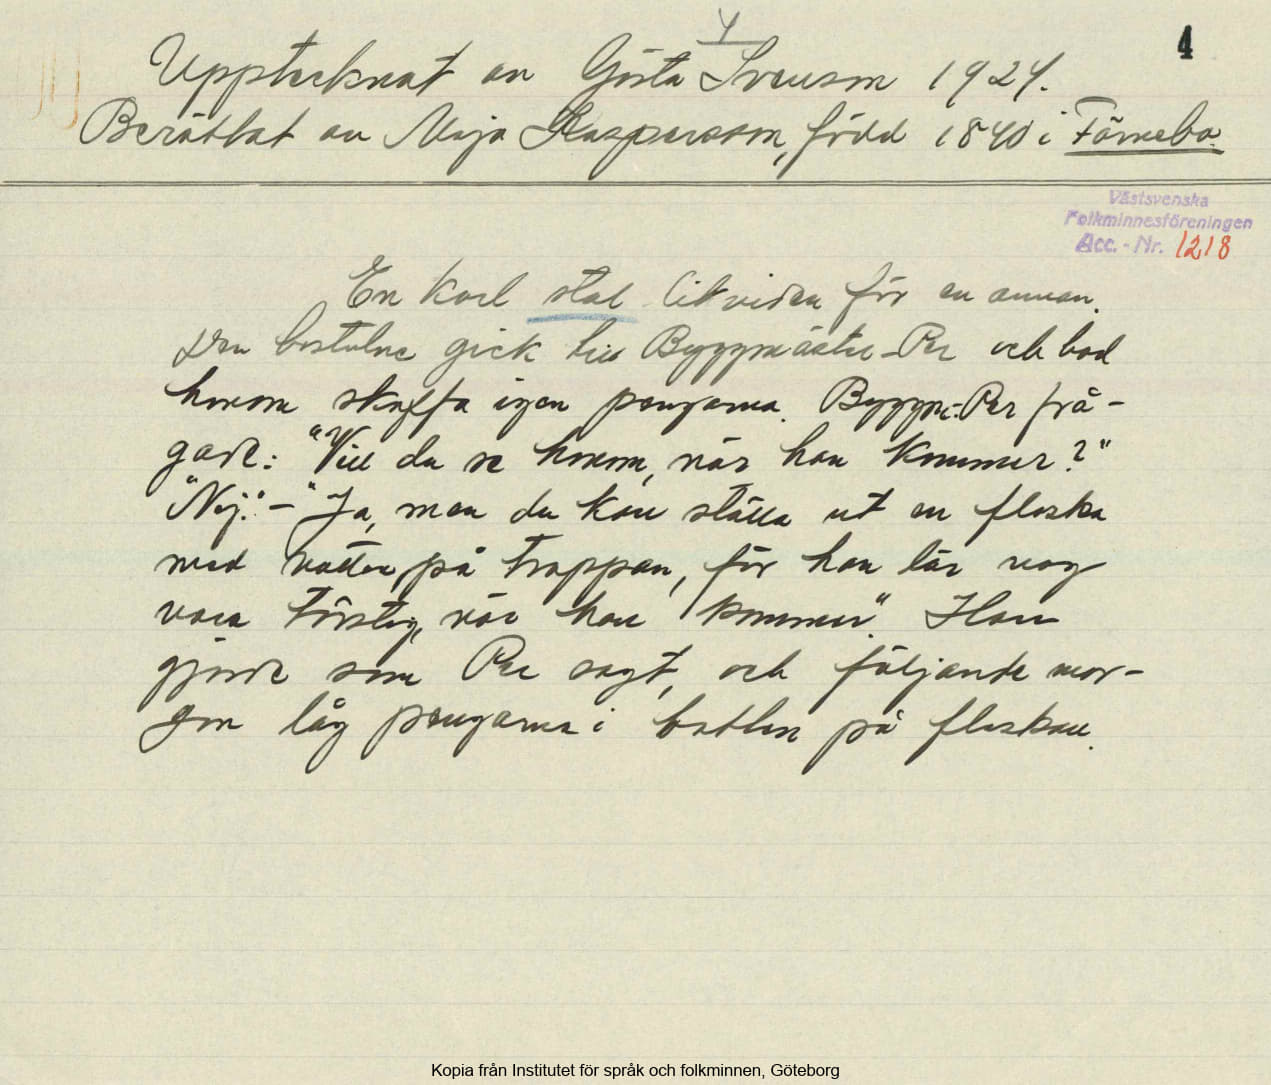 4
4
Upptecknat av Gösta Svenson 1924.
Berättat av Maja Kaspersson, född 1840 i Färnebo.
Västsvenska
Folkminnesföreningen
Acc. - Nr. 1218
En karl stal likviden för en annan.
Den bestulne gick till Byggmäster-Per och bad
honom skaffa igen pengarna. Byggm.-Per frå-
gade: "Vill du se honom, när han kommer?"
"Nej." - "Ja, men du kan ställa ut en flaska
med vatten på trappan, för han lär nog
vara törstig, när han kommer". Han
gjorde som Per sagt, och följande mor-
gon låg pengarna i botten på flaskan.
Kopia från Institutet för språk och folkminnen, Göteborg